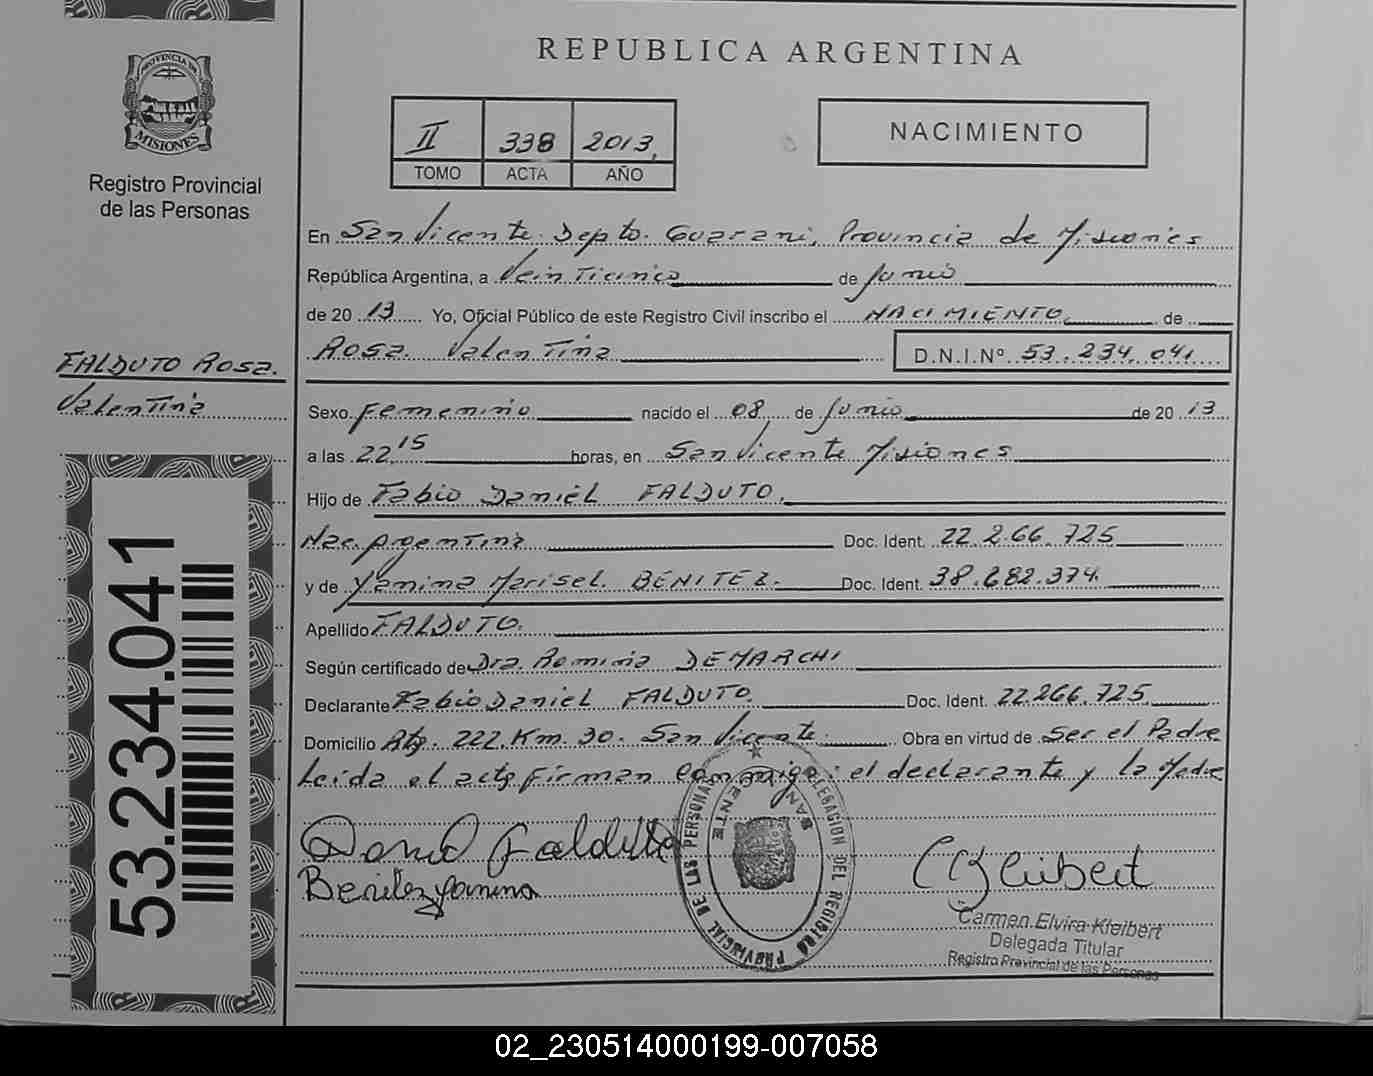 REPUBLICA ARGENTINA
PROVINCIA DE
MISIONES
Registro Provincial
de las Personas
II 338 2013,
TOMO ACTA AÑO
NACIMIENTO
En San Vicente. Depto. Guarani, Provincia de Misiones
República Argentina, a Veinticinco de Junio
de 20 13 Yo, Oficial Público de este Registro Civil inscribo el NACIMIENTO de
Rosa Valentina D.N.I.Nº 53.234.041
FALDUTO Rosa.
Valentina
Sexo Femenino nacido el 08 de Junio de 20 13
a las 22,15 horas, en San Vicente Misiones
Hijo de Fabio Daniel FALDUTO.
Nac. Argentina Doc. Ident. 22.266.725
y de Yanina Marisel. BENITEZ. Doc. Ident. 38.682.374.
Apellido FALDUTO.
Según certificado de Dra. Romina DEMARCHI
Declarante Fabio Daniel FALDUTO. Doc. Ident. 22.266.725.
Domicilio Rta. 222. Km. 30. San Vicente. Obra en virtud de Ser el Padre
Leida el acta firman conmigo: el declarante y la Madre
53.234.041
Benitez Yanina
DELEGACION DEL REGISTRO PROVINCIAL DE LAS PERSONAS
SAN VICENTE
CKleibert
Carmen Elvira Kleibert
Delegada Titular
Registro Provincial de las Personas
02_230514000199-007058